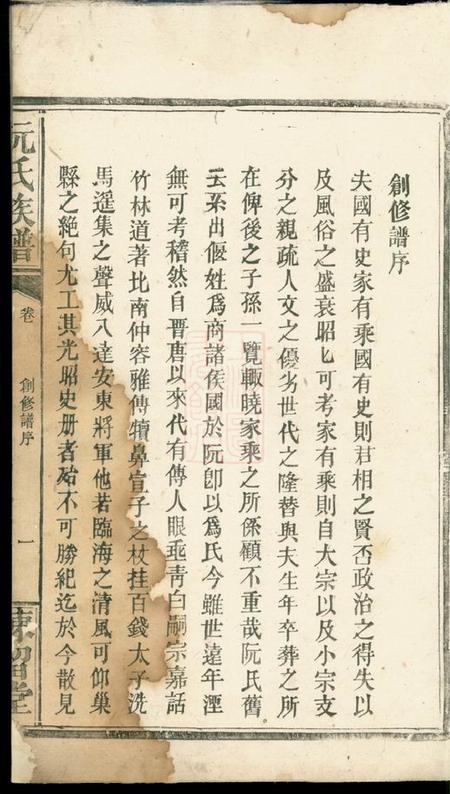 創修譜序
夫國有史家有乘國有史則君相之賢否政治之得失以
及風俗之盛衰昭匕可考家有乘則自大宗以及小宗支
分之親疏人文之優劣世代之隆替與夫生年卒葬之所
在俾後之子孫一覽輙曉家乘之所係顧不重哉阮氏舊
云系出偃姓爲商諸侯國於阮卽以爲氏今雖世遠年湮
無可考稽然自晉唐以來代有傳人眼垂青白嗣宗嘉話
竹林道著比南仲容雅傳犢鼻宣子之杖挂百錢太子洗
馬遥集之聲威八達安東將軍他若臨海之清風可仰巢
縣之絶句尤工其光昭史册者殆不可勝紀迄於今散見
阮氏族譜
卷
創修譜序
一
陳留堂